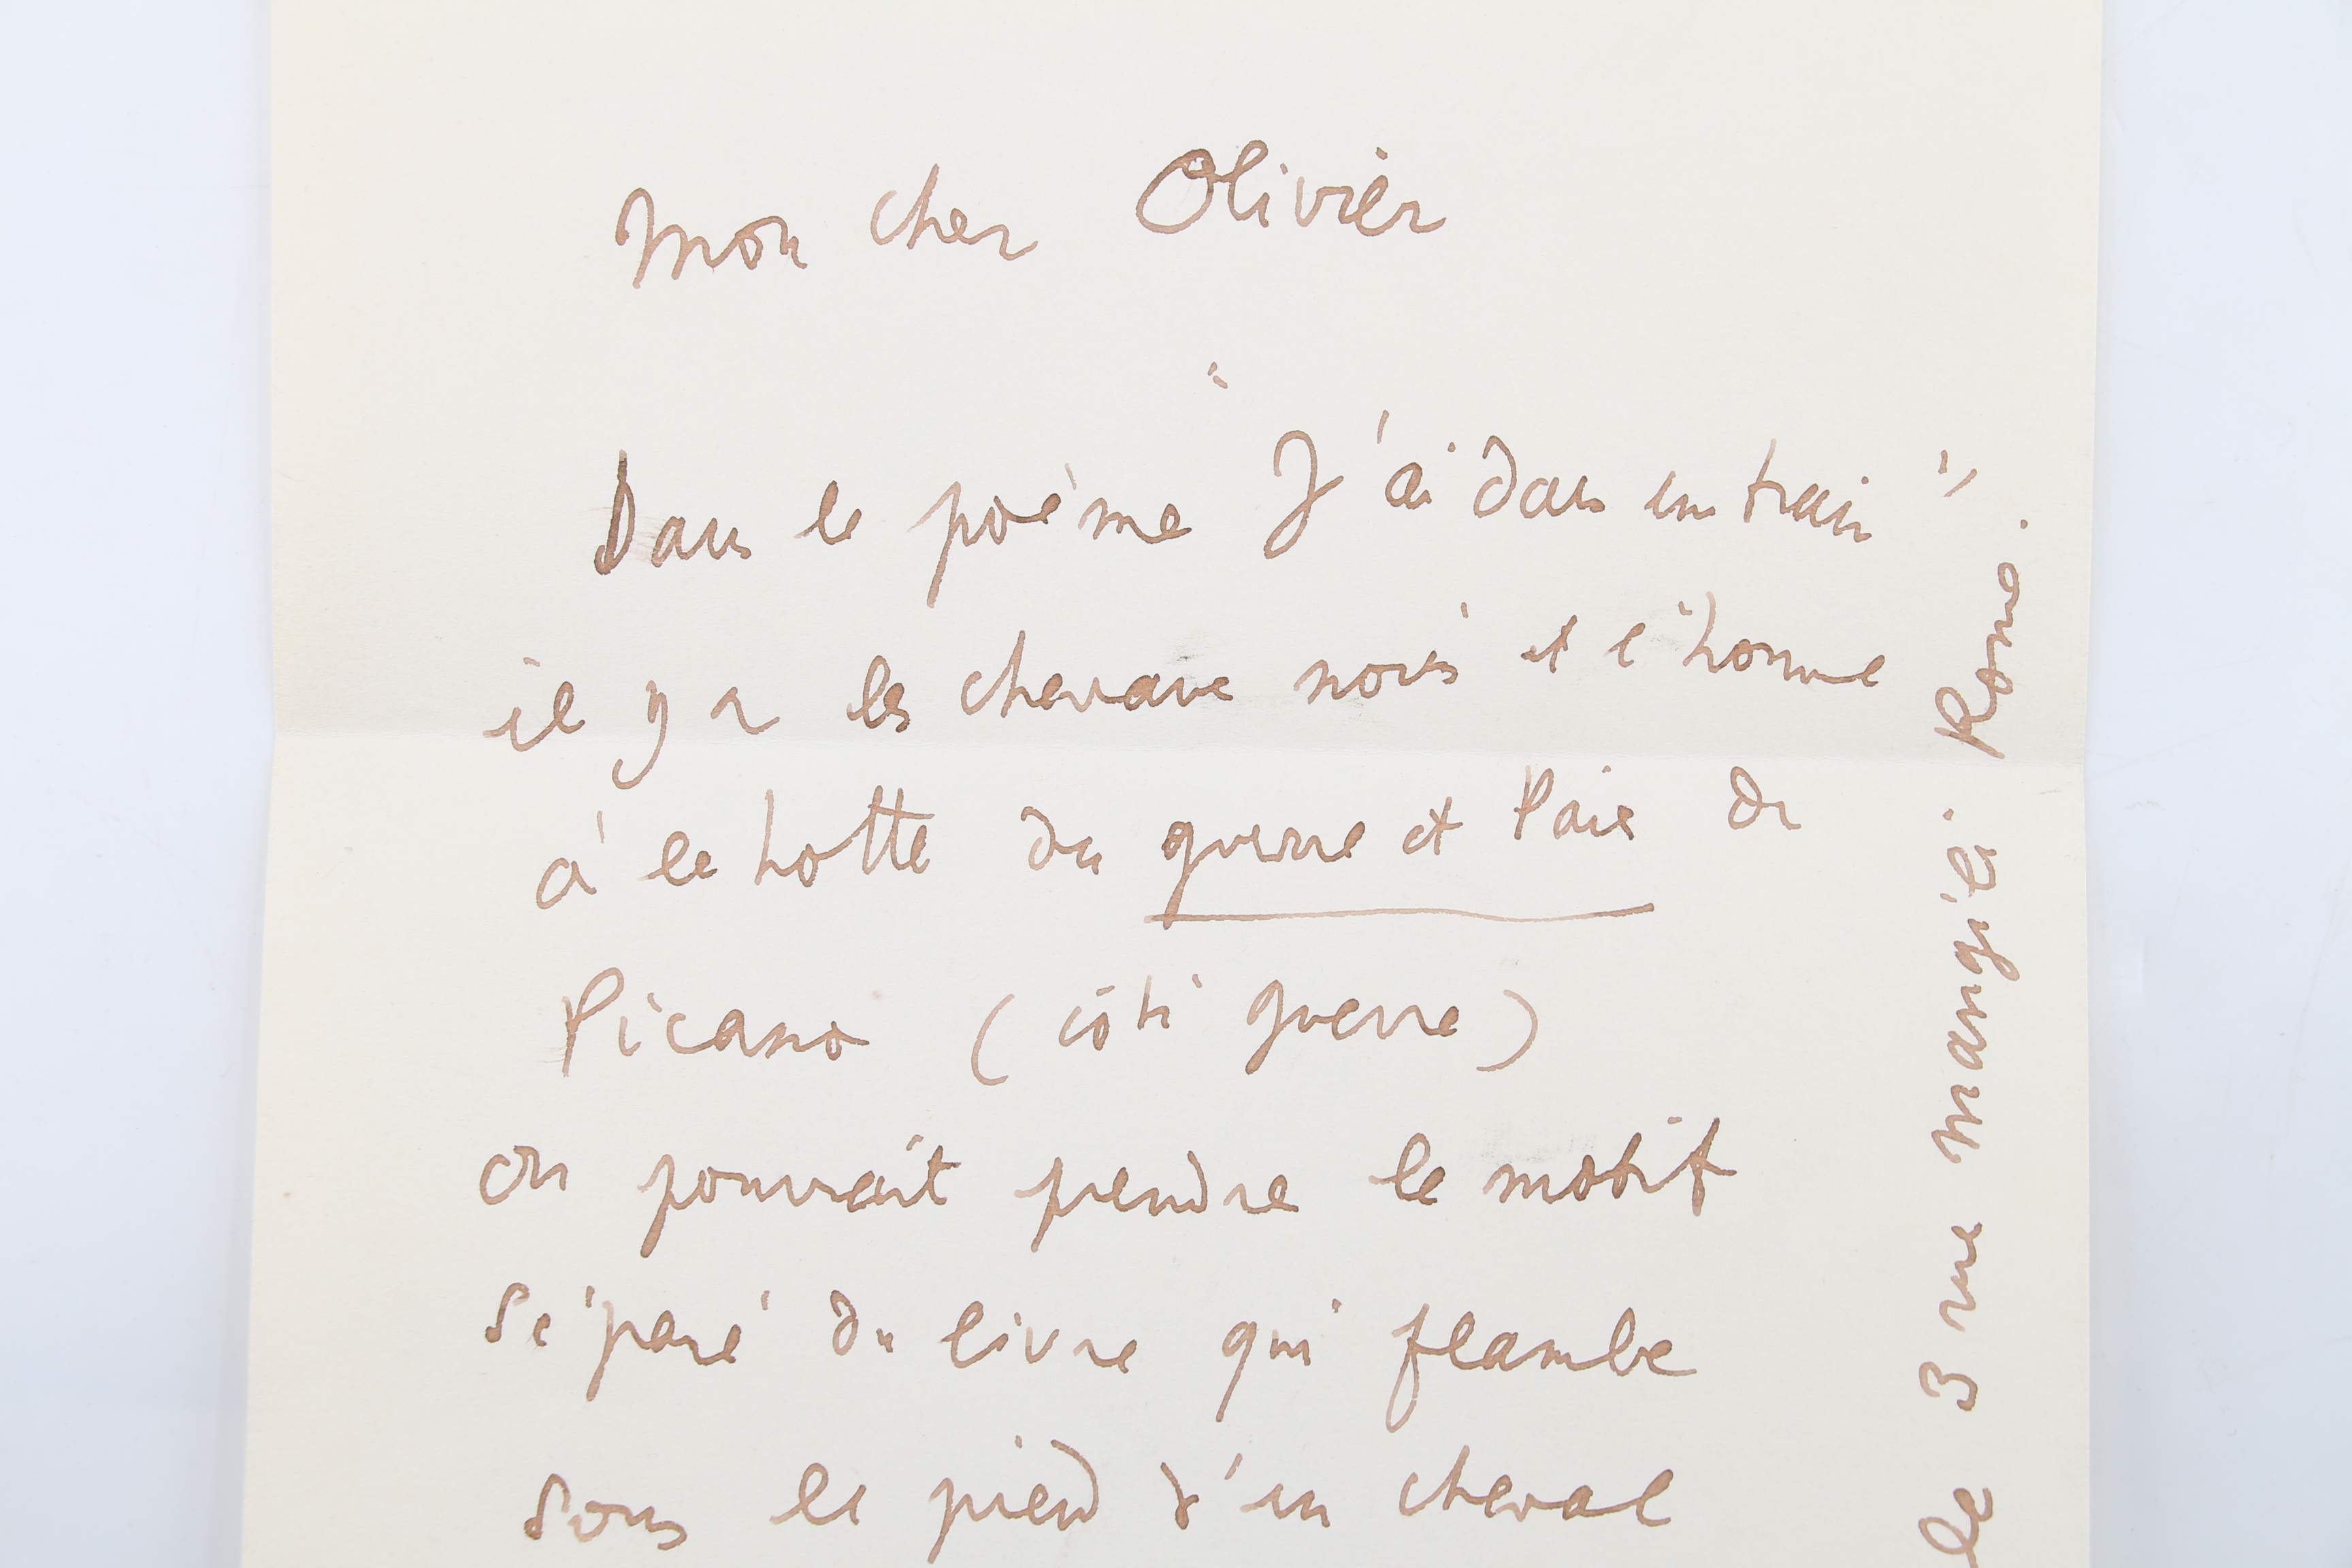 Mon cher Olivier
Dans le poème "J'ai dans un train".
il y a les chevaux noirs et l'homme
à la hotte du guerre et Paix de
Picasso (côté guerre)
on pourrait prendre le motif
séparé du livre qui flambe
sous le pied d'un cheval
le 3 rue Mangili. Rome